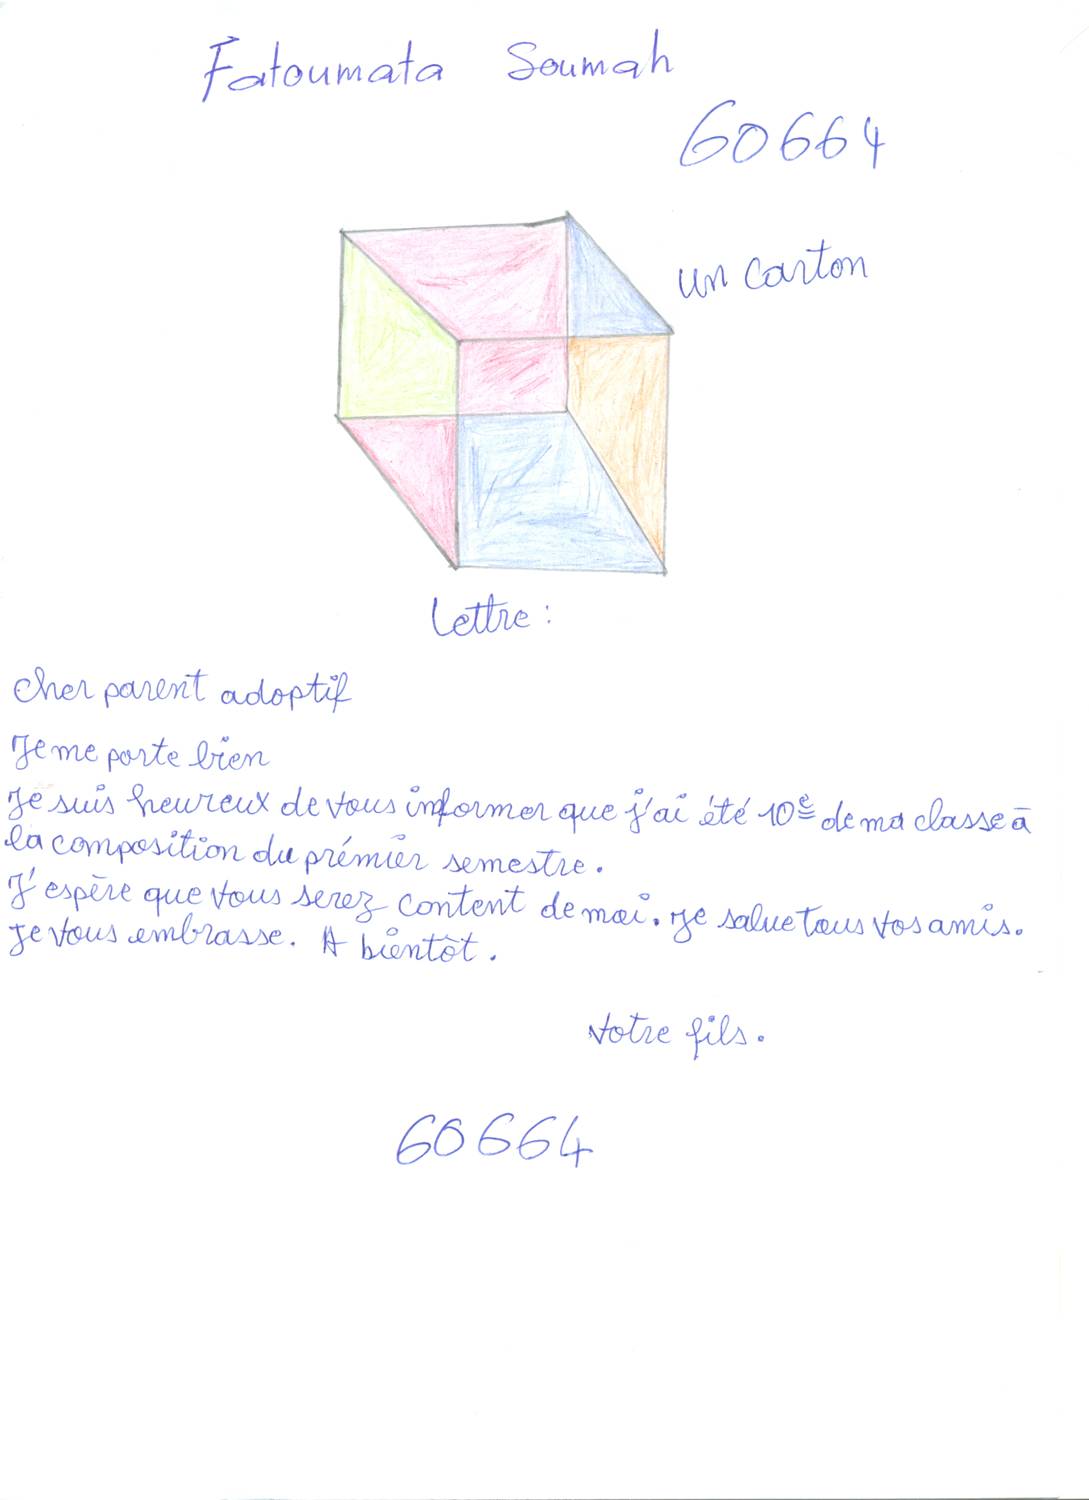 Fatoumata Soumah
60664
un carton
Lettre :
Cher parent adoptif
Je me porte bien
Je suis heureux de vous informer que j'ai été 10e de ma classe à
la composition du prémier semestre.
J'espère que vous serez content de moi. Je salue tous vos amis.
Je vous embrasse. A bientôt.
Votre fils.
60664